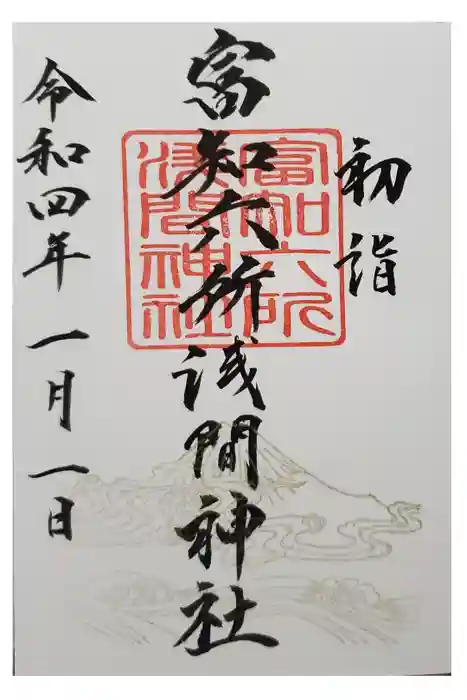 初詣
富知六所浅間神社
富知六所
浅間神社
令和四年一月一日